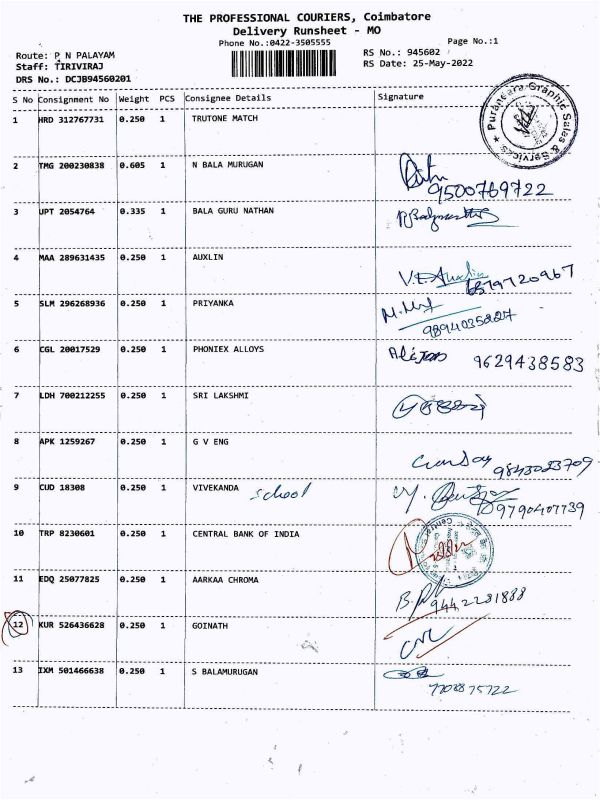 THE PROFESSIONAL COURIERS, Coimbatore
Delivery Runsheet - MO
Phone No.:0422-3505555
Page No.:1
Route: P N PALAYAM
Staff: TIRIVIRAJ
DRS No.: DCJB94560201
RS No.: 945602
RS Date: 25-May-2022
S No Consignment No Weight PCS Consignee Details Signature
1 HRD 312767731 0.250 1 TRUTONE MATCH
Purandara Graphic Sales & Services
2 TMG 200230838 0.605 1 N BALA MURUGAN
9500769722
3 UPT 2054764 0.335 1 BALA GURU NATHAN
4 MAA 289631435 0.250 1 AUXLIN
5 SLM 296268936 0.250 1 PRIYANKA
6 CGL 20017529 0.250 1 PHONIEX ALLOYS
9629438583
7 LDH 700212255 0.250 1 SRI LAKSHMI
8 APK 1259267 0.250 1 G V ENG
9843023709
9 CUD 18308 0.250 1 VIVEKANDA school
9790407739
10 TRP 8230601 0.250 1 CENTRAL BANK OF INDIA
11 EDQ 25077825 0.250 1 AARKAA CHROMA
9442281888
12 KUR 526436628 0.250 1 GOINATH
13 IXM 501466638 0.250 1 S BALAMURUGAN
7708875722